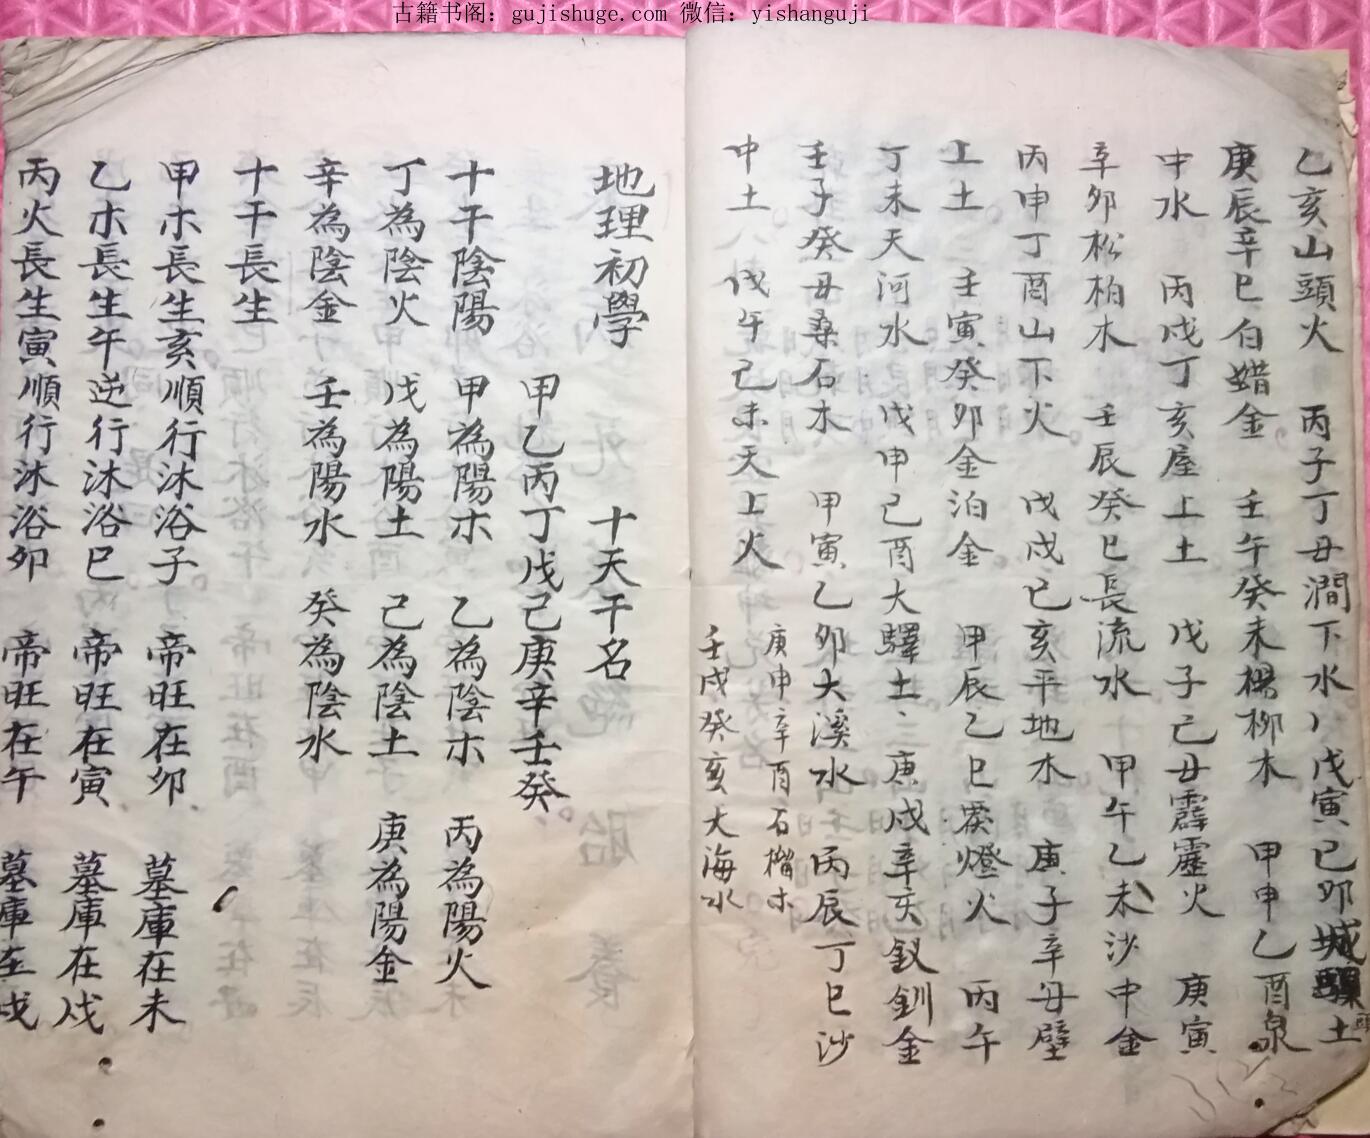 古籍书阁：gujishuge.com 微信：yishanguji
乙亥山頭火 丙子丁丑澗下水 戊寅己卯城頭土
庚辰辛巳白蜡金 壬午癸未楊柳木 甲申乙酉泉
中水 丙戌丁亥屋上土 戊子己丑霹靂火 庚寅
辛卯松柏木 壬辰癸巳長流水 甲午乙未沙中金
丙申丁酉山下火 戊戌己亥平地木 庚子辛丑壁
上土 壬寅癸卯金泊金 甲辰乙巳燈火 丙午
丁未天河水 戊申己酉大驛土 庚戌辛亥釵釧金
壬子癸丑桑石木 甲寅乙卯大溪水 丙辰丁巳沙
中土 戊午己未天上火 庚申辛酉石榴木
壬戌癸亥大海水
地理初學 十天干名
甲乙丙丁戊己庚辛壬癸
十干陰陽 甲為陽木 乙為陰木 丙為陽火
丁為陰火 戊為陽土 己為陰土 庚為陽金
辛為陰金 壬為陽水 癸為陰水
十干長生
甲木長生亥順行沐浴子 帝旺在卯 墓庫在未
乙木長生午逆行沐浴巳 帝旺在寅 墓庫在戌
丙火長生寅順行沐浴卯 帝旺在午 墓庫在戌